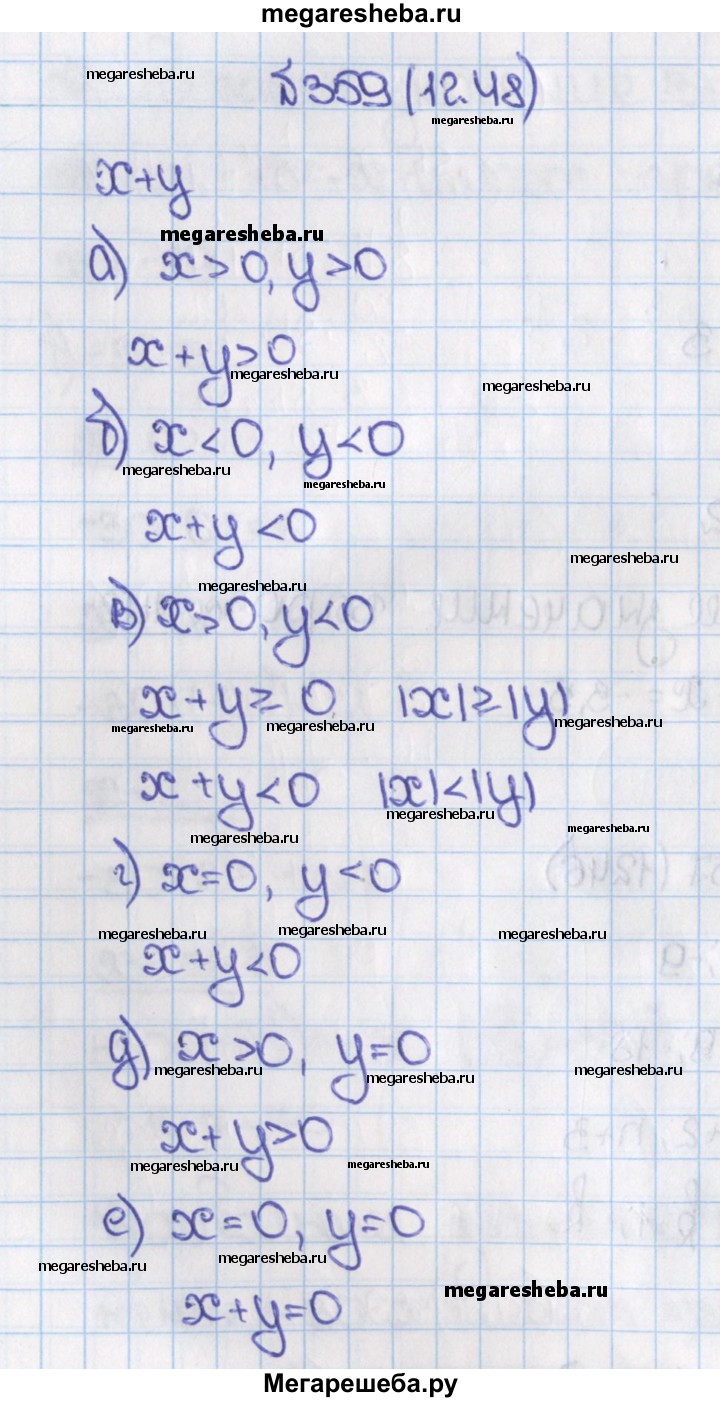 megaresheba.ru
megaresheba.ru
№359 (12.48)
megaresheba.ru
x+y
megaresheba.ru
а) x>0, y>0
x+y>0
megaresheba.ru
megaresheba.ru
б) x<0, y<0
megaresheba.ru
megaresheba.ru
x+y<0
megaresheba.ru
megaresheba.ru
в) x>0, y<0
x+y≥0, |x|≥|y|
megaresheba.ru
megaresheba.ru
megaresheba.ru
x+y<0 |x|<|y|
megaresheba.ru
megaresheba.ru
megaresheba.ru
г) x=0, y<0
megaresheba.ru
megaresheba.ru
megaresheba.ru
x+y<0
д) x>0, y=0
megaresheba.ru
megaresheba.ru
megaresheba.ru
x+y>0
megaresheba.ru
megaresheba.ru
е) x=0, y=0
megaresheba.ru
megaresheba.ru
megaresheba.ru
x+y=0
Мегарешеба.ру